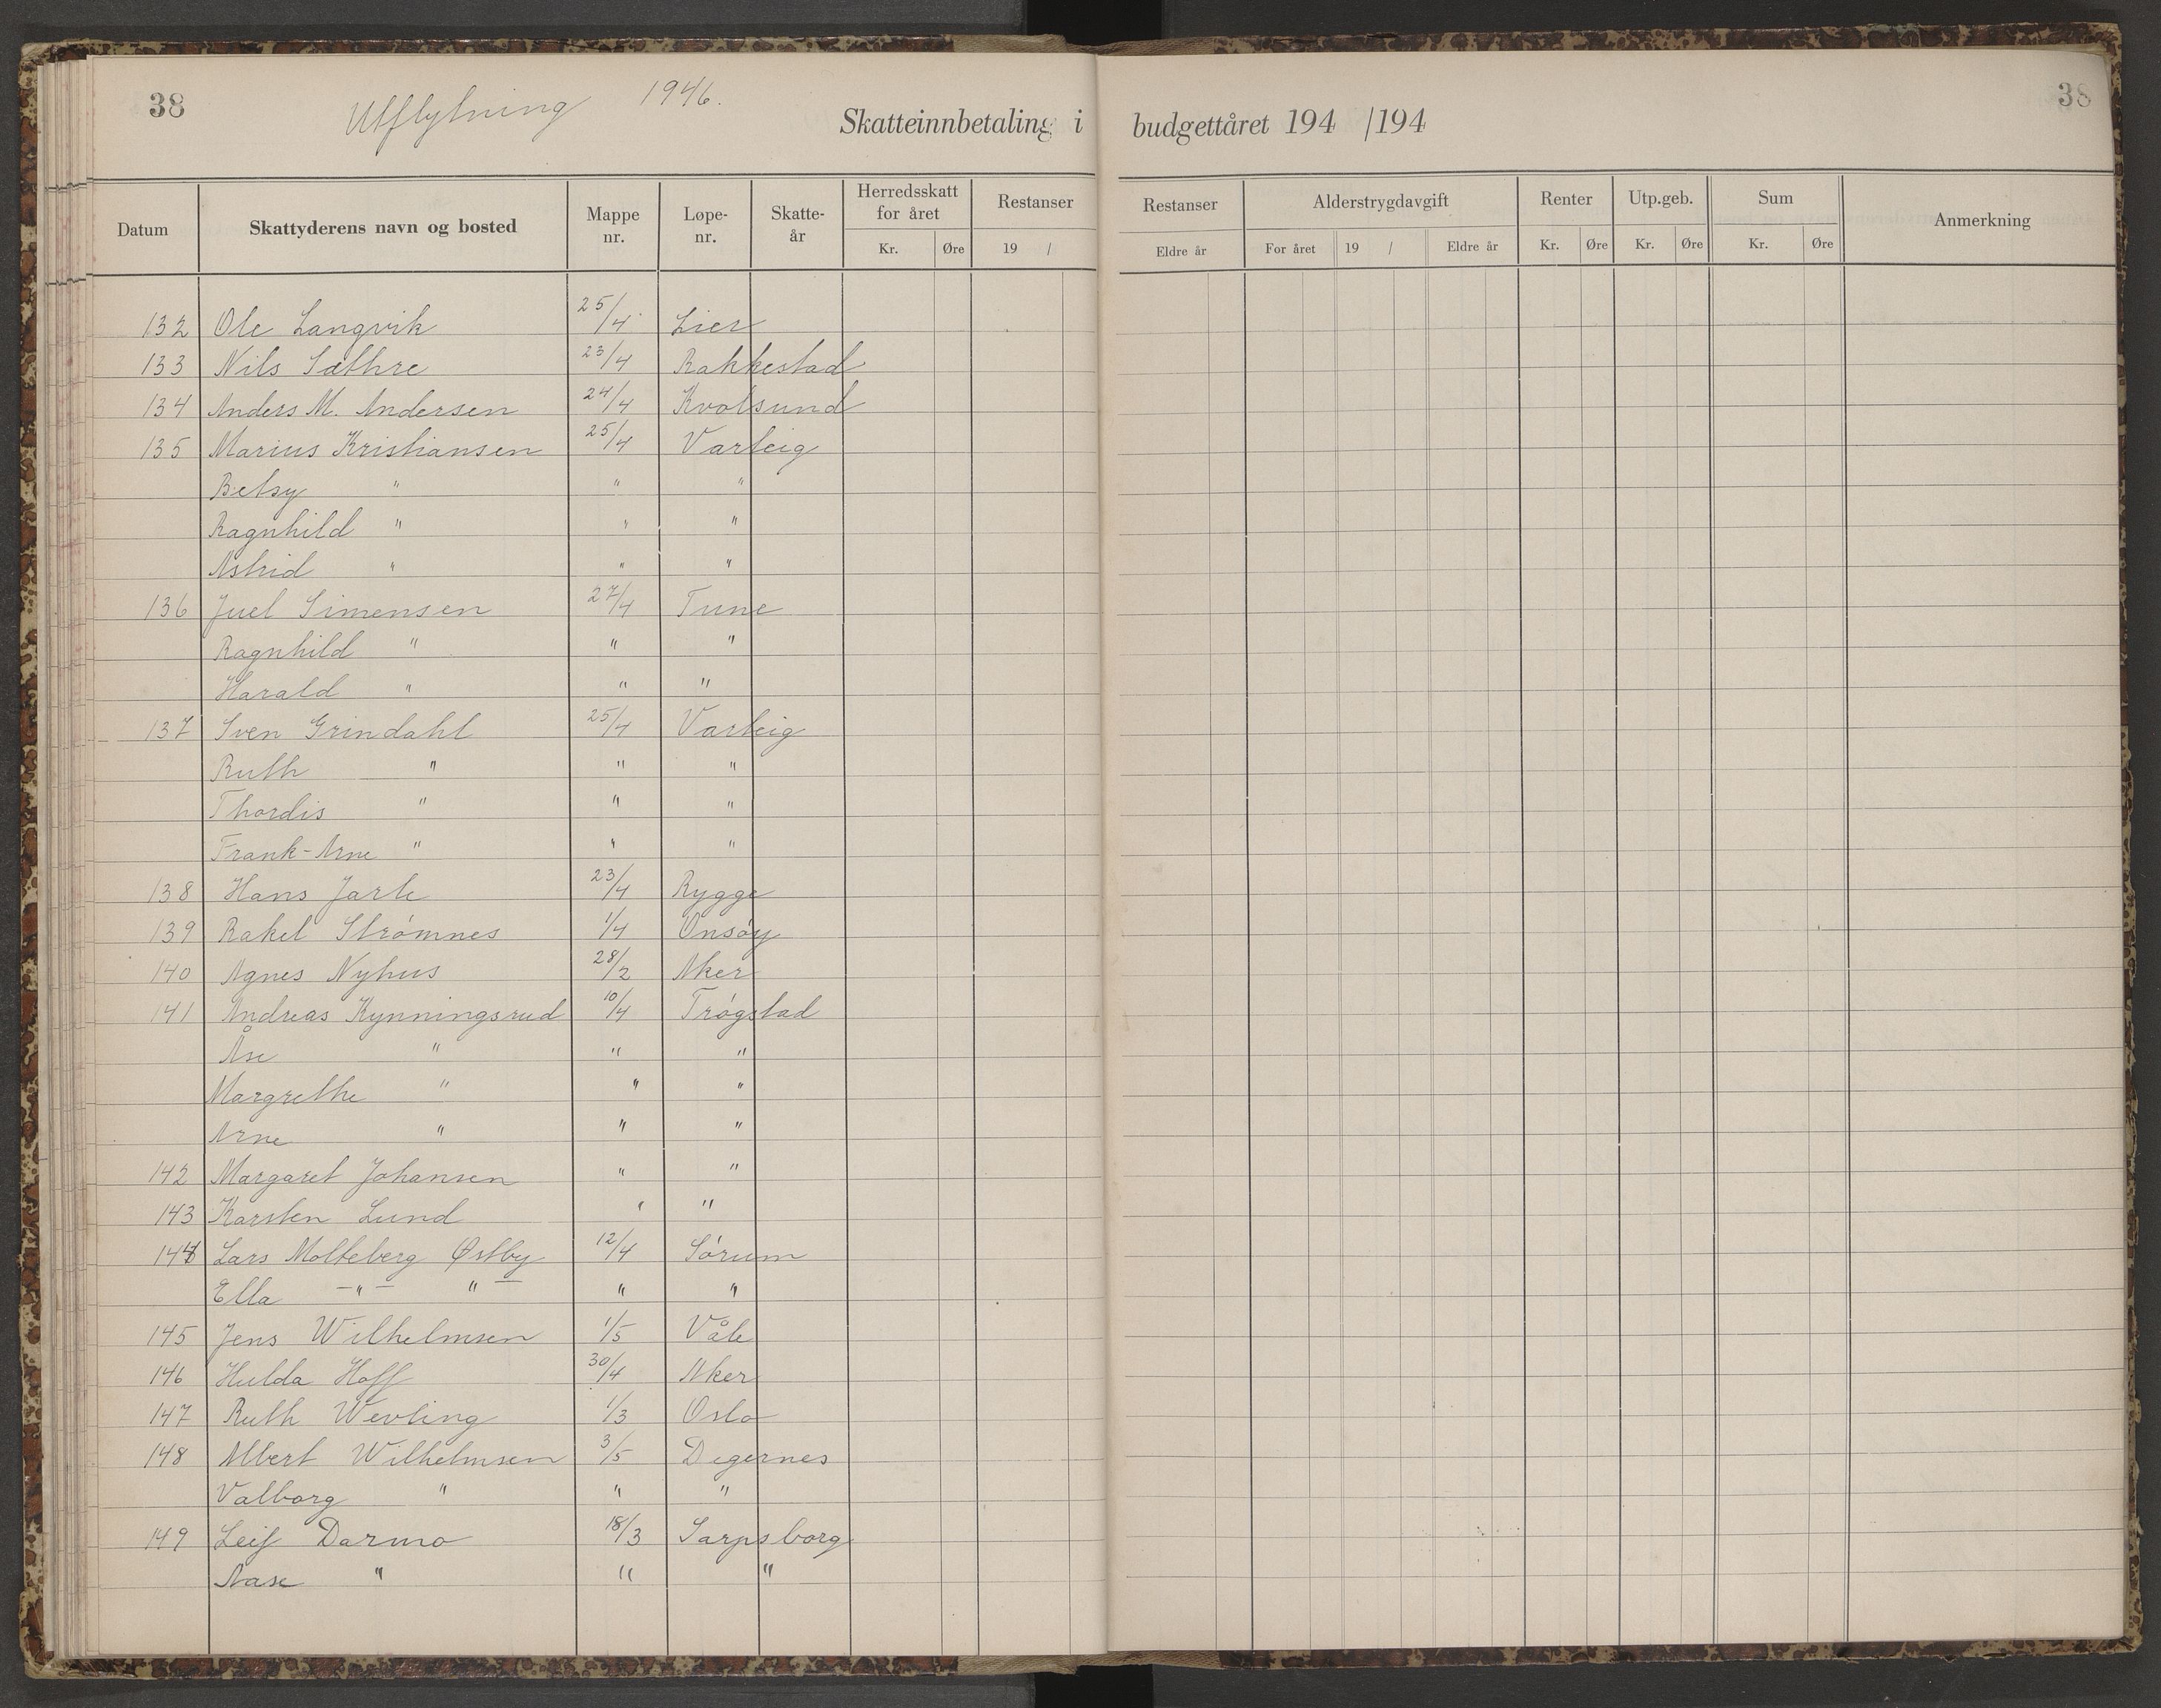 38
Utflytning 1946.
Skatteinnbetaling i budgettåret 194 /194
38
Datum Skattyderens navn og bosted Mappe nr. Løpe-nr. Skatte-år Herredsskatt for året Kr. Øre Restanser 19 / Restanser Eldre år Alderstrygdavgift For året 19 / Eldre år Renter Kr. Øre Utp.geb. Kr. Øre Sum Kr. Øre Anmerkning
132 Ole Langvik 25/4 Lier
133 Nils Sæthre 23/4 Rakkestad
134 Anders M. Andersen 24/4 Kvalsund
135 Marius Kristiansen 25/4 Varteig
Betsy " " "
Ragnhild " " "
Astrid " " "
136 Juel Simensen 27/4 Tune
Ragnhild " " "
Harald " " "
137 Sven Grindahl 25/4 Varteig
Ruth " " "
Thordis " " "
Frank-Arne " " "
138 Hans Jarle 23/4 Rygge
139 Rakel Strømnes 1/4 Onsøy
140 Agnes Nyhus 28/2 Aker
141 Andreas Kynningsrud 10/4 Trøgstad
Åse " " "
Margrethe " " "
Arne " " "
142 Margaret Johansen " "
143 Karsten Lund " "
144 Lars Molteberg Østby 12/4 Sørum
Ella -"- " " "
145 Jens Wilhelmsen 1/5 Våle
146 Hulda Hoff 30/4 Aker
147 Ruth Wevling 1/3 Oslo
148 Albert Wilhelmsen 3/5 Degernes
Valborg " " "
149 Leif Darmo 18/3 Sarpsborg
Aase " " "